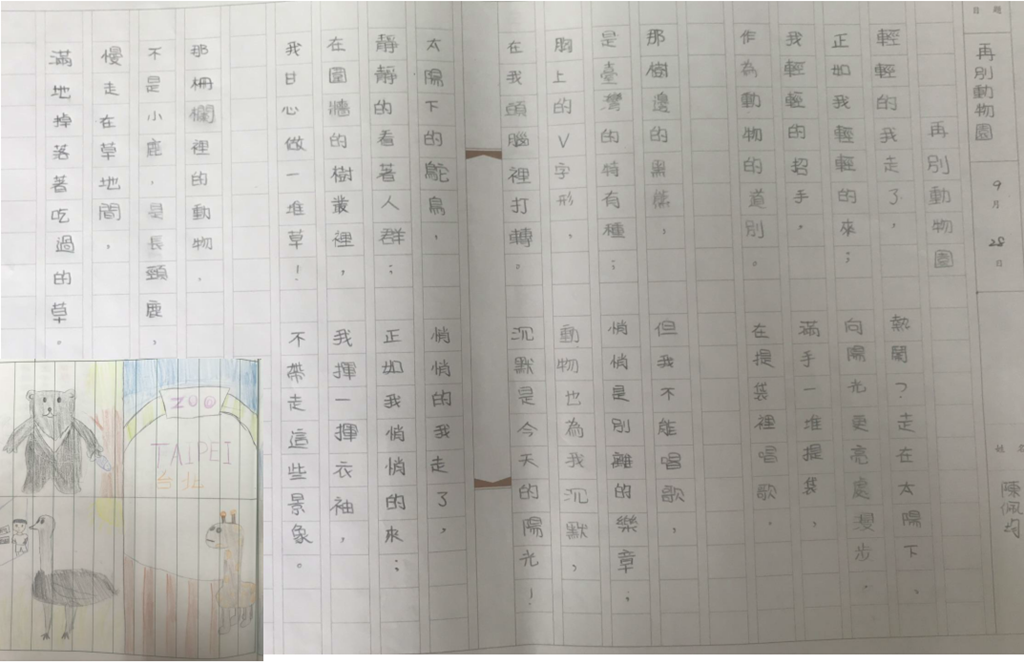 題目
再別動物園
9月28日
陳佩均
再別動物園
輕輕的我走了，
正如我輕輕的來；
我輕輕的招手，
作為動物的道別。
那樹邊的黑熊，
是臺灣的特有種；
胸上的V字形，
在我頭腦裡打轉。
太陽下的鴕鳥，
靜靜的看著人群；
在圍牆的樹叢裡，
我甘心做一堆草！
那柵欄裡的動物，
不是小鹿，是長頸鹿，
慢走在草地間，
滿地掉落著吃過的草。
熱鬧？走在太陽下，
向陽光更亮處漫步，
滿手一堆提袋，
在提袋裡唱歌。
但我不能唱歌，
悄悄是別離的樂章；
動物也為我沉默，
沉默是今天的陽光！
悄悄的我走了，
正如我悄悄的來；
我揮一揮衣袖，
不帶走這些景象。
ZOO
TAIPEI
台北